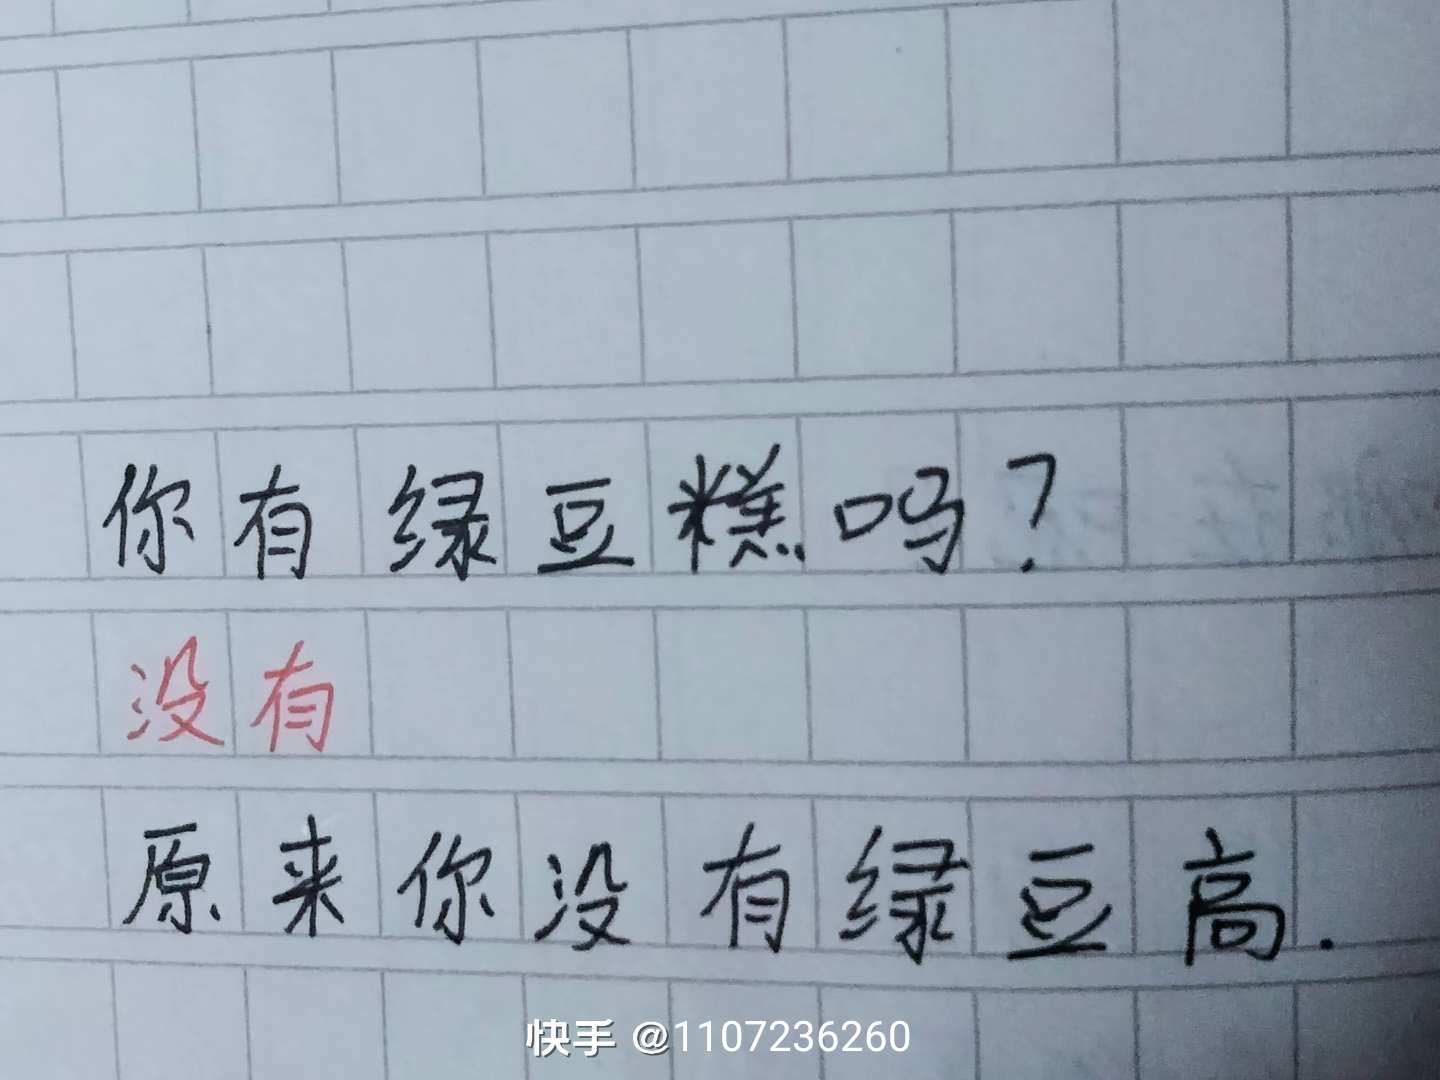 你有绿豆糕吗?
没有
原来你没有绿豆高.
快手 @1107236260